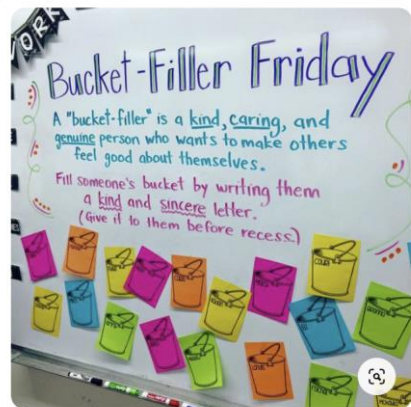 WORK
Bucket-Filler Friday
A "bucket-filler" is a kind, caring, and
genuine person who wants to make others
feel good about themselves.
Fill someone's bucket by writing them
a kind and sincere letter.
(Give it to them before recess.)